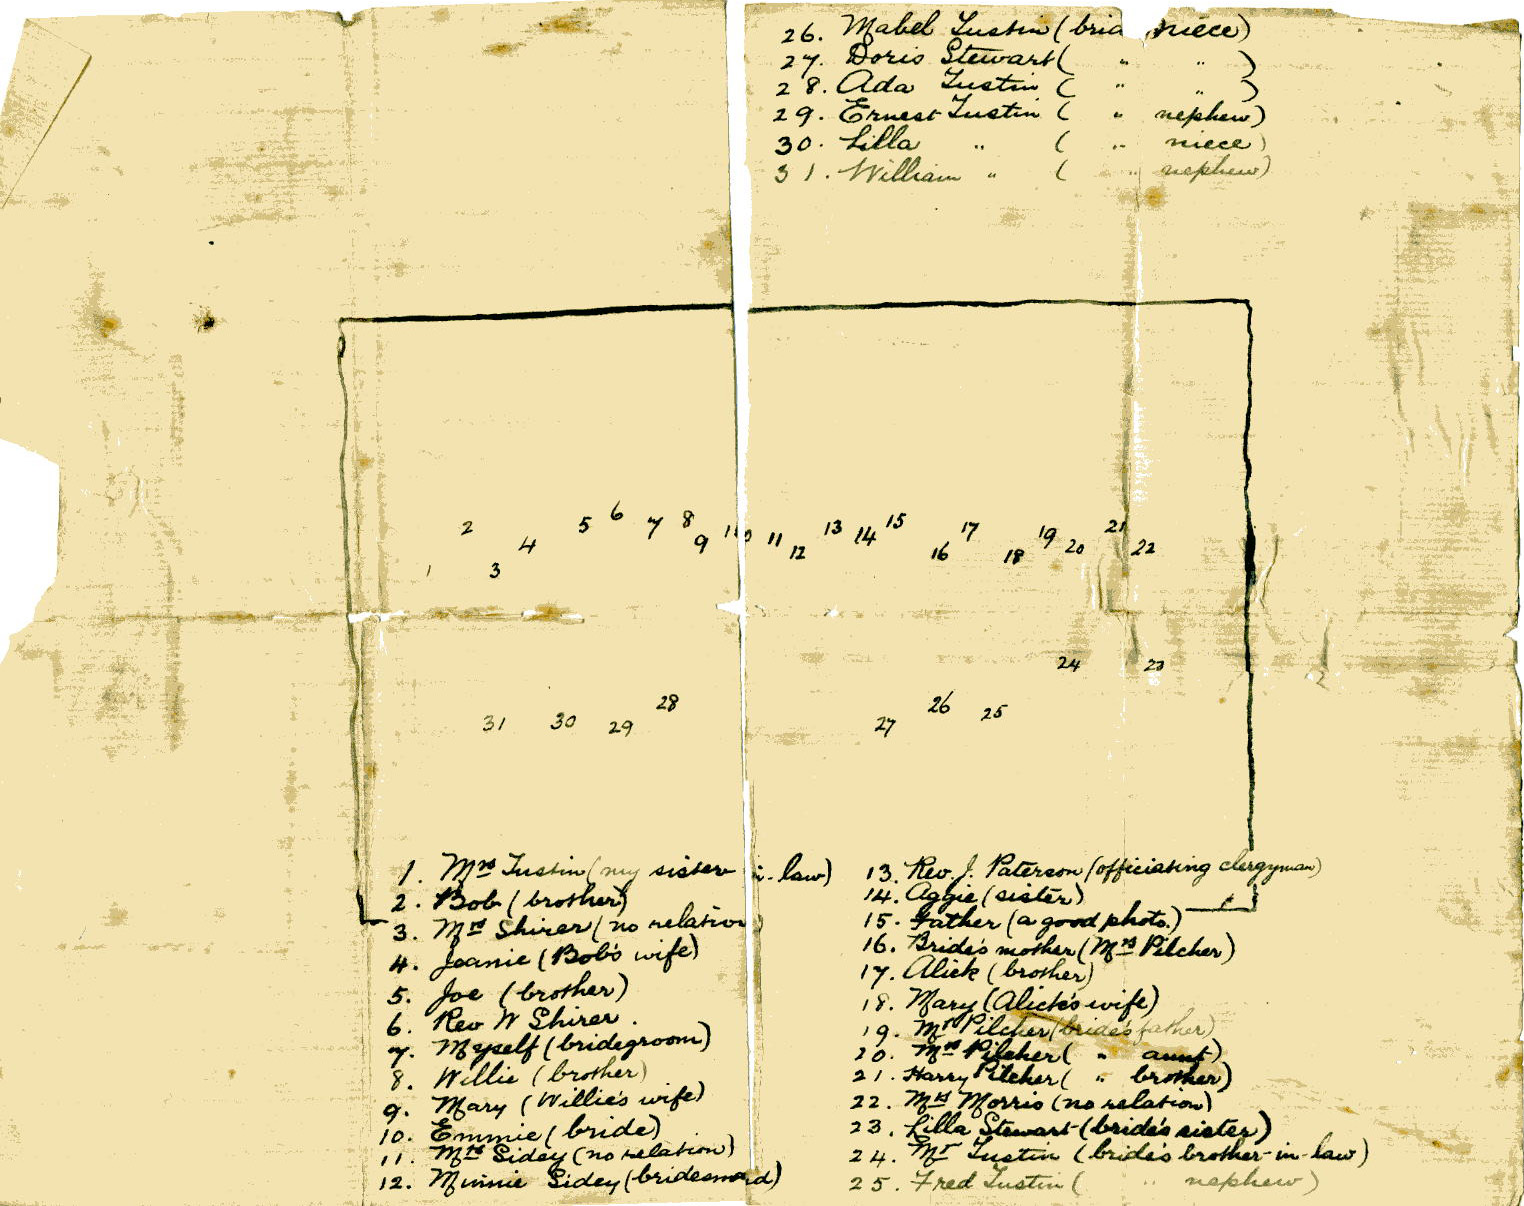 26. Mabel Tustin (bri niece)
27. Doris Stewart ( " " )
28. Ada Tustin ( " " )
29. Ernest Tustin ( " nephew)
30. Lilla " ( " niece)
31. William " ( " nephew)
2 5 6 7 8 9 10 11 12 13 14 15 16 17 18 19 20 21 22
1 3 4
24 23
31 30 29 28 27 26 25
1. Mrs Tustin (my sister in-law)
2. Bob (brother)
3. Mrs Shirer (no relation)
4. Jeanie (Bob's wife)
5. Joe (brother)
6. Rev W Shirer.
7. Myself (bridegroom)
8. Willie (brother)
9. Mary (Willie's wife)
10. Emmie (bride)
11. Mrs Sidey (no relation)
12. Minnie Sidey (bridesmaid)
13. Rev. J. Paterson (officiating clergyman)
14. Aggie (sister)
15. Father (a good photo.)
16. Bride's mother (Mrs Pilcher)
17. Alick (brother)
18. Mary (Alick's wife)
19. Mr Pilcher (bride's father)
20. Mrs Pilcher ( " aunt)
21. Harry Pilcher ( " brother)
22. Mrs Morris (no relation)
23. Lilla Stewart (bride's sister)
24. Mr Tustin (bride's brother-in-law)
25. Fred Tustin ( " nephew)